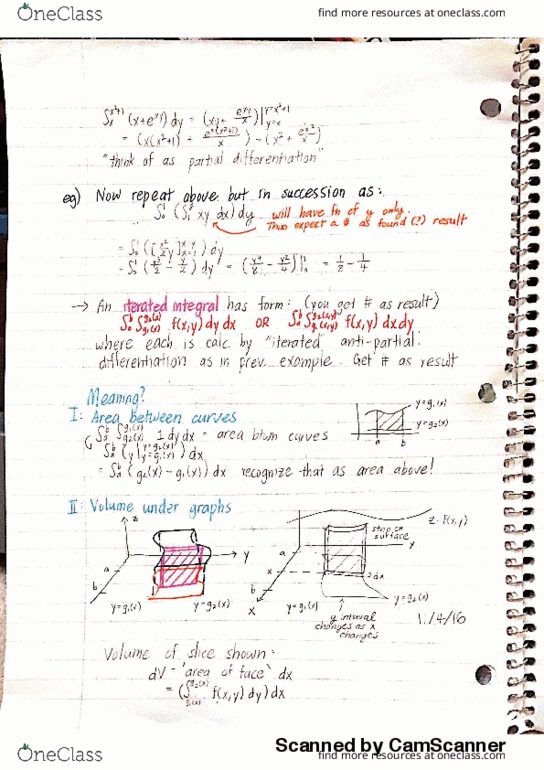 OneClass
find more resources at oneclass.com
∫ₓ^(x²+1) (x+e^(xy)) dy = (xy + e^(xy)/x)|_(y=x)^(y=x²+1)
= (x(x²+1) + e^(x(x²+1))/x) - (x² + e^(x²)/x)
"think of as partial differentiation"
eg) Now repeat above but in succession as:
xy dx) dy will have fn of y only.
Thus expect a # as found (?) result
dy
dy = (y⁴/8 - y²/4)|₀¹ = 1/8 - 1/4
→ An iterated integral has form: (you get # as result)
f(x,y) dy dx OR f(x,y) dx dy
where each is calc. by "iterated" anti-partial
differentiation as in prev. example. Get # as result
Meaning?
I: Area between curves
1 dy dx = area btwn curves
dx
= ∫ₐᵇ (g₂(x) - g₁(x)) dx recognize that as area above!
y=g₁(x)
y=g₂(x)
a b
II: Volume under graphs
z
a
b
y
y=g₁(x)
y=g₂(x)
z=f(x,y)
strip on
surface
a
x
b
x
y
dx
y=g₁(x)
y=g₂(x)
y interval
changes as x
changes
11/4/16
Volume of slice shown:
dV = 'area of face' dx
= (∫_(g₁(x))^(g₂(x)) f(x,y) dy) dx
Scanned by CamScanner
OneClass
find more resources at oneclass.com